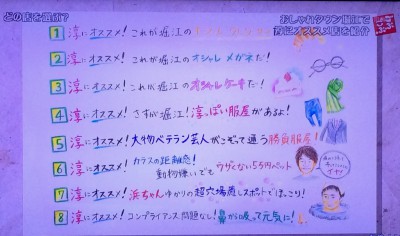 どの店を選択?
おしゃれタウン堀江で
淳にオススメ店を紹介
1 淳にオススメ!これが堀江の
2 淳にオススメ!これが堀江のオシャレメガネだ!
3 淳にオススメ!これが堀江のオシャレケーキだ!
4 淳にオススメ!さすが堀江!淳っぽい服屋があるよ!
5 淳にオススメ!大物ベテラン芸人がこぞって通う勝負服屋!
6 淳にオススメ!カラスの距離感!動物嫌いでもウザくない5万円ペット
イヤ!
7 淳にオススメ!浜ちゃんゆかりの超穴場癒しスポットでほっこり!
8 淳にオススメ!コンプライアンス問題なし!鼻から吸って元気に!